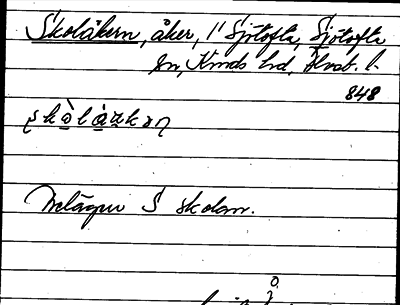 Skolåkern, åker, 1/1 Sjötofta, Sjötofta
sn, Kinds hd, Älvsb. l.
848
Belägen S skolan.